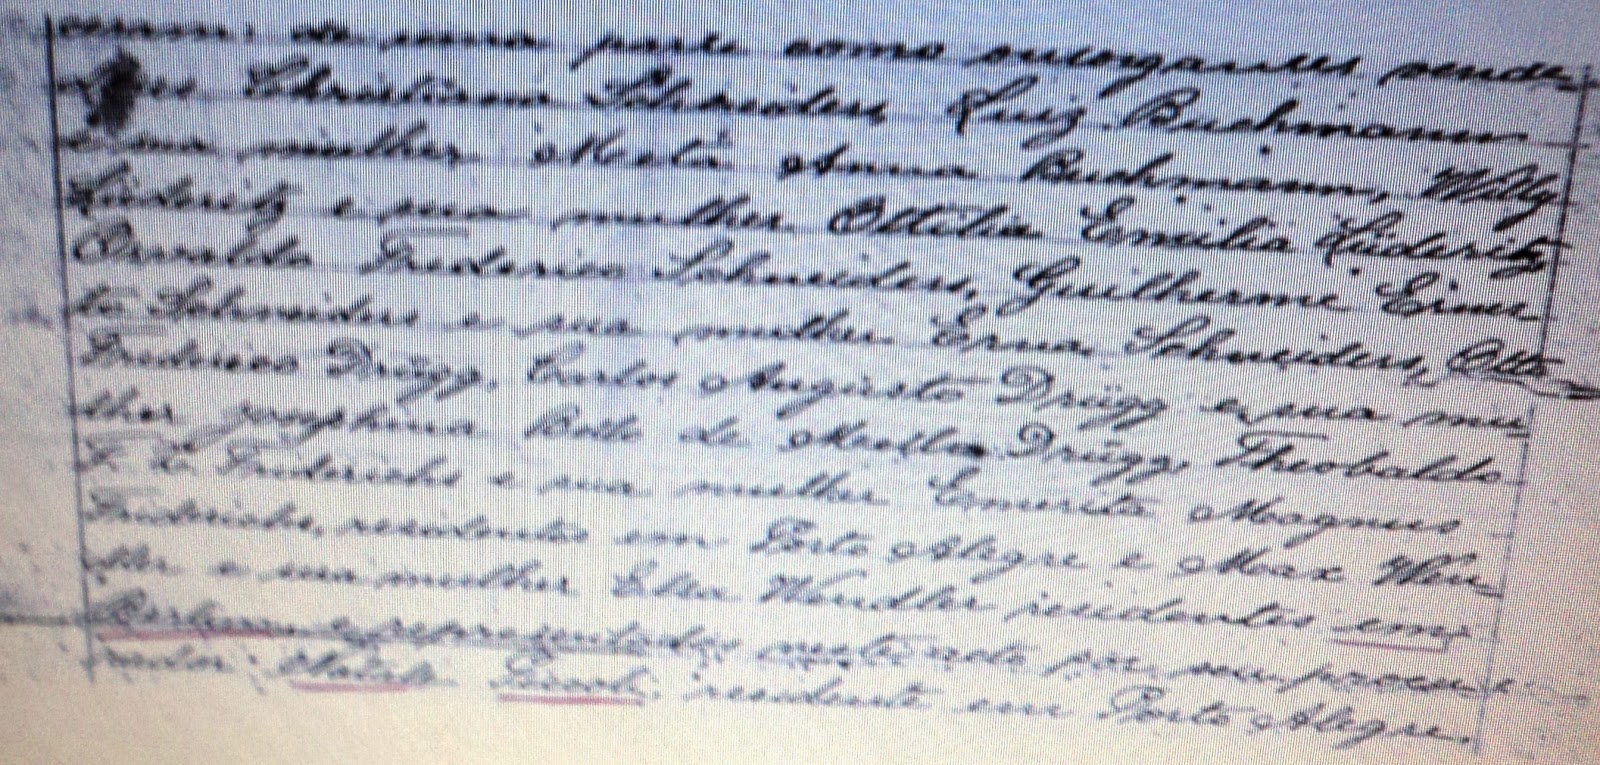 de uma parte como outorgantes vende
Christiano Schneiders, Luiz Buchmann
e sua mulher Meta Anna Buchmann, Willy
Lüderitz e sua mulher Ottilia Emilia Lüderitz,
Oswaldo Frederico Schneiders, Guilherme Ernes
to Schneiders e sua mulher Erna Schneiders, Otto
Frederico Drügg, Carlos Augusto Drügg e sua mu
lher Josephina de Mello Drügg, Theobaldo
F. Friederichs e sua mulher Emerita Magnus
Friederichs, residentes em Porto Alegre e Max Wen
dler e sua mulher Elsa Wendler residentes em
e representados neste acto por seu procu
rador residente em Porto Alegre.